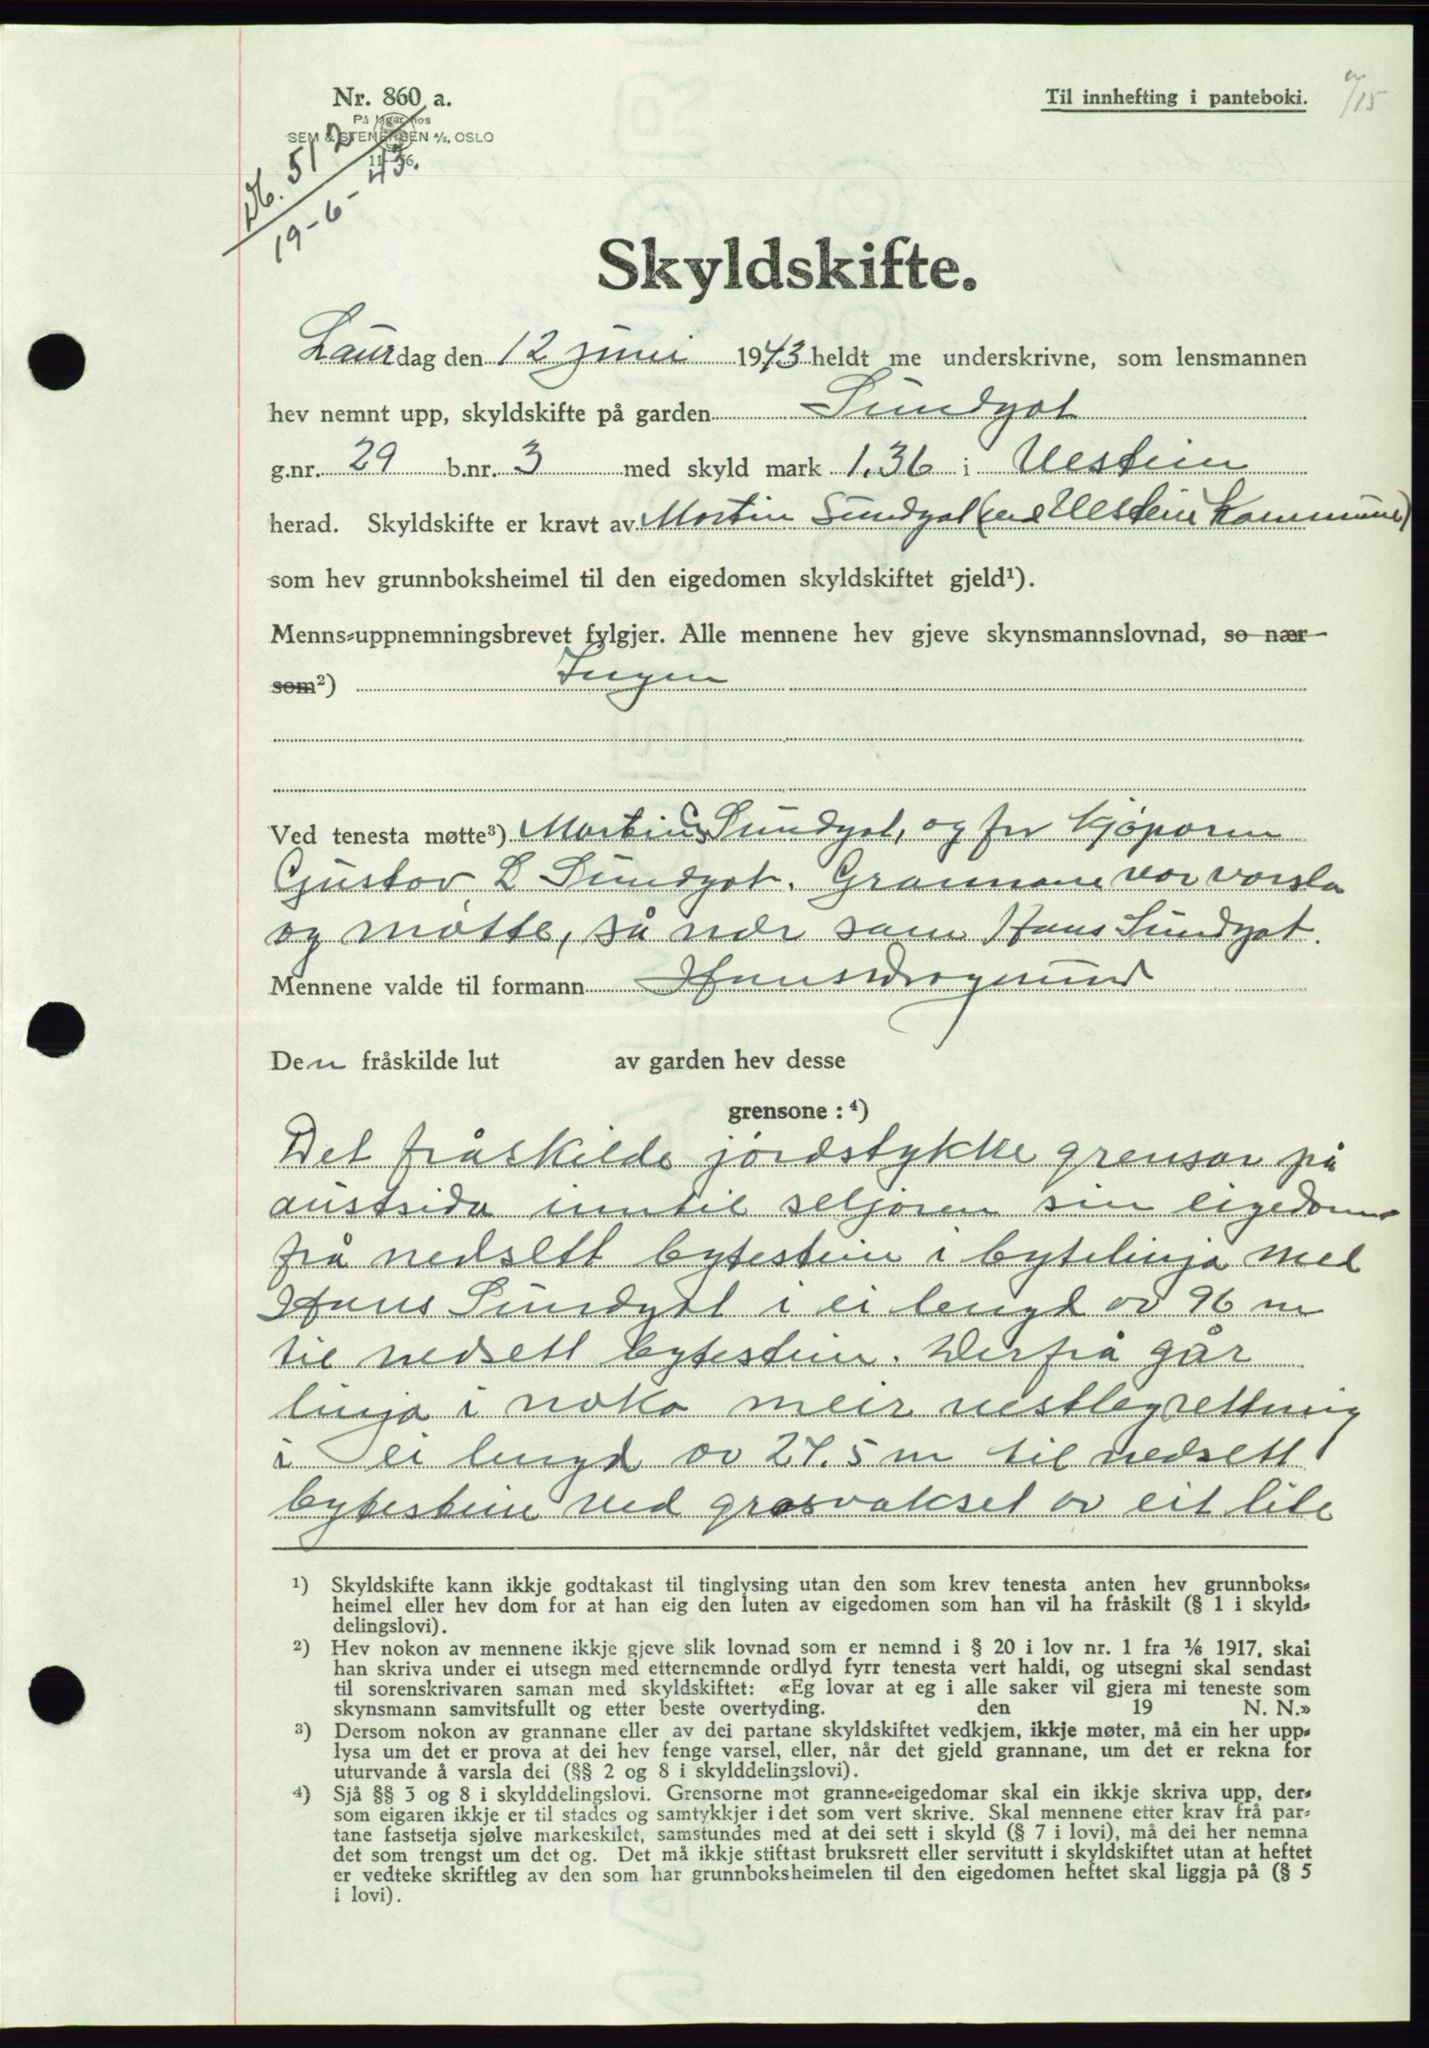 Nr. 860 a.
På lager hos
SEM & STENERSEN A/S, OSLO
Til innhefting i panteboki.
Nr. 512
19-6-43.
Skyldskifte.
Laurdag den 12 juni 1943 heldt me underskrivne, som lensmannen
hev nemnt upp, skyldskifte på garden Sundgot
g.nr. 29 b.nr. 3 med skyld mark 1.36 i Ulstein
herad. Skyldskifte er kravt av Martin Sundgot (ved Ulstein Kommune)
som hev grunnboksheimel til den eigedomen skyldskiftet gjeld¹).
Menns-uppnemningsbrevet fylgjer. Alle mennene hev gjeve skynsmannslovnad, so nær
som²) Ingen
Ved tenesta møtte³) Martin Sundgot, og for kjøparen
Gustav L Sundgot. Grannane var varsla
og møtte, så nær som Hans Sundgot.
Mennene valde til formann Hans Dragsund
Den fråskilde lut av garden hev desse
grensone : ⁴)
Det fråskilde jordstykke grensar på
austsida inntil seljaren sin eigedom
frå nedsett bytestein i bytelinja med
Hans Sundgot i ei lengd av 96 m
til nedsett bytestein. Derfrå går
linja i noko meir vestleg retning
i ei lengd av 27.5 m til nedsett
bytestein ved grasvakset av eit lite
¹) Skyldskifte kann ikkje godtakast til tinglysing utan den som krev tenesta anten hev grunnboks-
heimel eller hev dom for at han eig den luten av eigedomen som han vil ha fråskilt (§ 1 i skyld-
delingslovi).
²) Hev nokon av mennene ikkje gjeve slik lovnad som er nemnd i § 20 i lov nr. 1 fra 1/6 1917, skal
han skriva under ei utsegn med etternemnde ordlyd fyrr tenesta vert haldi, og utsegni skal sendast
til sorenskrivaren saman med skyldskiftet: «Eg lovar at eg i alle saker vil gjera mi teneste som
skynsmann samvitsfullt og etter beste overtyding. den 19 N. N.»
³) Dersom nokon av grannane eller av dei partane skyldskiftet vedkjem, ikkje møter, må ein her upp-
lysa um det er prova at dei hev fenge varsel, eller, når det gjeld grannane, um det er rekna for
uturvande å varsla dei (§§ 2 og 8 i skylddelingslovi).
⁴) Sjå §§ 3 og 8 i skylddelingslovi. Grensorne mot granne-eigedomar skal ein ikkje skriva upp, der-
som eigaren ikkje er til stades og samtykkjer i det som vert skrive. Skal mennene etter krav frå par-
tane fastsetja sjølve markeskilet, samstundes med at dei sett i skyld (§ 7 i lovi), må dei her nemna
det som trengst um det og. Det må ikkje stiftast bruksrett eller servitutt i skyldskiftet utan at heftet
er vedteke skriftleg av den som har grunnboksheimelen til den eigedomen heftet skal liggja på (§ 5
i lovi).